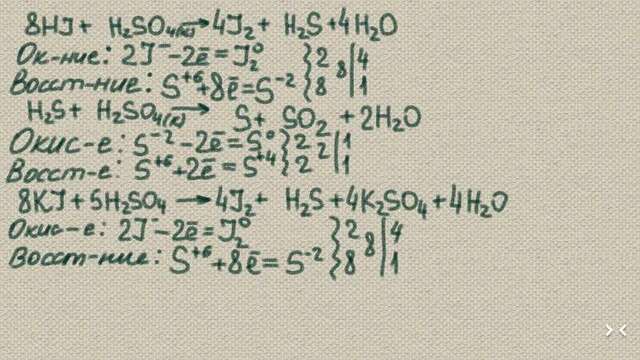 8HJ + H₂SO₄(к) → 4J₂ + H₂S + 4H₂O
Ок-ние: 2J⁻ - 2ē = J₂⁰ } 2 8 | 4
Восст-ние: S⁺⁶ + 8ē = S⁻² } 8 | 1
H₂S + H₂SO₄(к) → S + SO₂ + 2H₂O
Окис-е: S⁻² - 2ē = S⁰ } 2 2 | 1
Восст-е: S⁺⁶ + 2ē = S⁺⁴ } 2 | 1
8KJ + 5H₂SO₄ → 4J₂ + H₂S + 4K₂SO₄ + 4H₂O
Окис-е: 2J⁻ - 2ē = J₂⁰ } 2 8 | 4
Восст-ние: S⁺⁶ + 8ē = S⁻² } 8 | 1